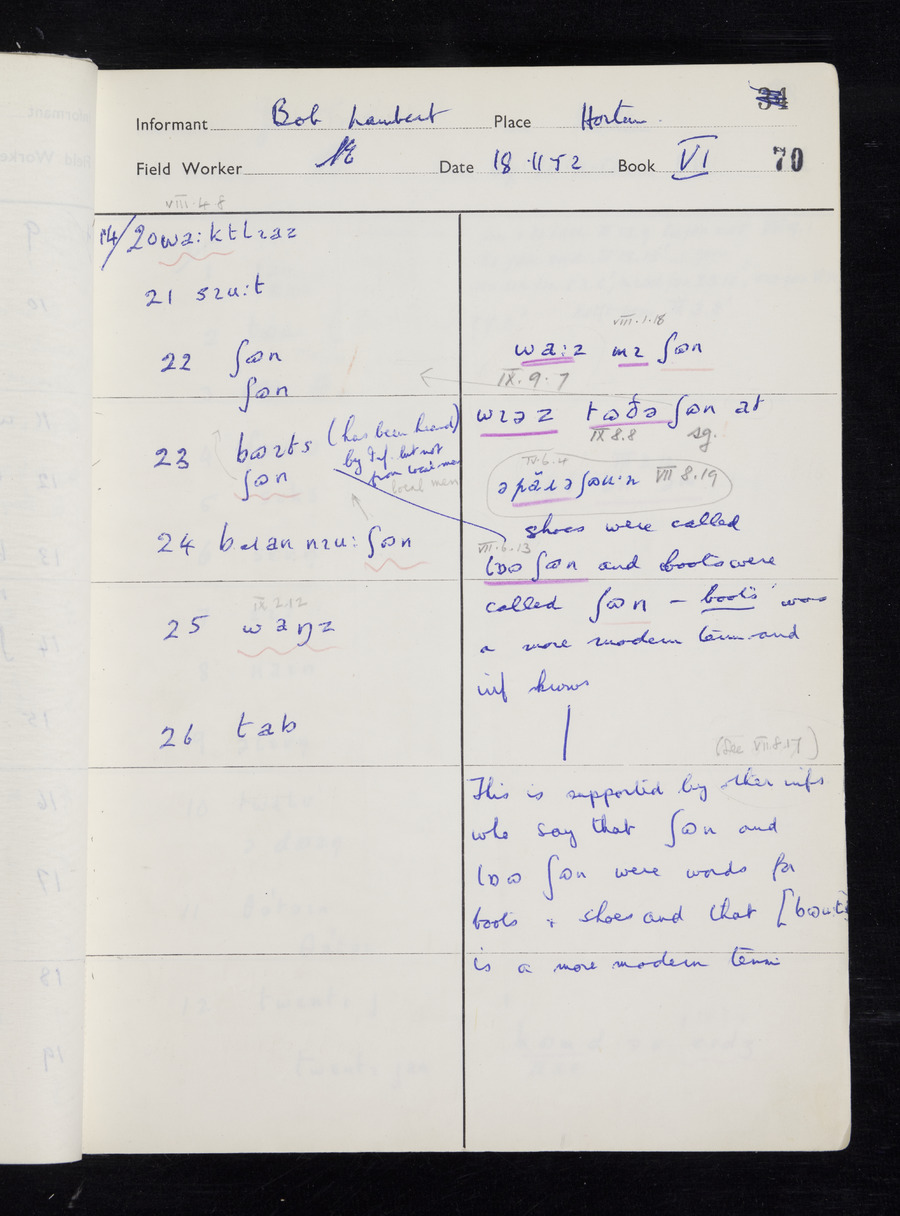 34
Informant Bob Lambert Place Horton.
Field Worker Date 18·11 52 Book VI 70
VIII·4·8
14/20 wa:ktlɪəz
21 sɪu:t
22 ʃɷn
ʃɷn
23 bɷɪts (has been heard
by Inf. but not
from local men
local men
ʃɷn
24 bɹan nɪu: ʃɷn
IX 2.12
25 waŋz
26 tab
VIII·1·18
wa:z mɪ ʃɷn
IX·9·7
wɪəz tɷðə ʃɷn at
IX 8.8 sg.
IV·6·4
əpɛ̈:ɹə ʃɷu:n VII 8.19
shoes were called
VII·6·13
lɒɷ ʃɷn and boots were
called ʃɷn – boots was
a more modern term and
inf knows
(See VII.8.17)
This is supported by other infs
who say that ʃɷn and
lɒɷ ʃɷn were words for
boots + shoes and that [bɷuts]
is a more modern term